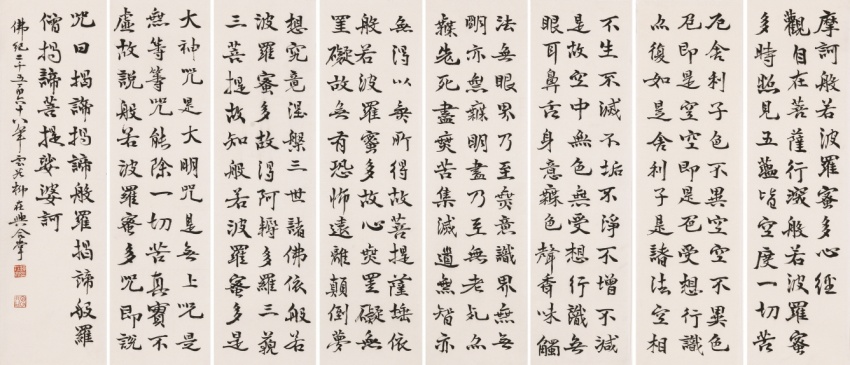 摩訶般若波羅蜜多心經
觀自在菩薩行深般若波羅蜜
多時照見五蘊皆空度一切苦
厄舍利子色不異空空不異色
色即是空空即是色受想行識
亦復如是舍利子是諸法空相
不生不滅不垢不淨不增不減
是故空中無色無受想行識無
眼耳鼻舌身意無色聲香味觸
法無眼界乃至無意識界無無
明亦無無明盡乃至無老死亦
無老死盡無苦集滅道無智亦
無得以無所得故菩提薩埵依
般若波羅蜜多故心無罣礙無
罣礙故無有恐怖遠離顛倒夢
想究竟涅槃三世諸佛依般若
波羅蜜多故得阿耨多羅三藐
三菩提故知般若波羅蜜多是
大神咒是大明咒是無上咒是
無等等咒能除一切苦真實不
虛故說般若波羅蜜多咒即說
咒曰揭諦揭諦般羅揭諦般羅
僧揭諦菩提娑婆訶
佛紀二千五百六十八年柳在興合掌